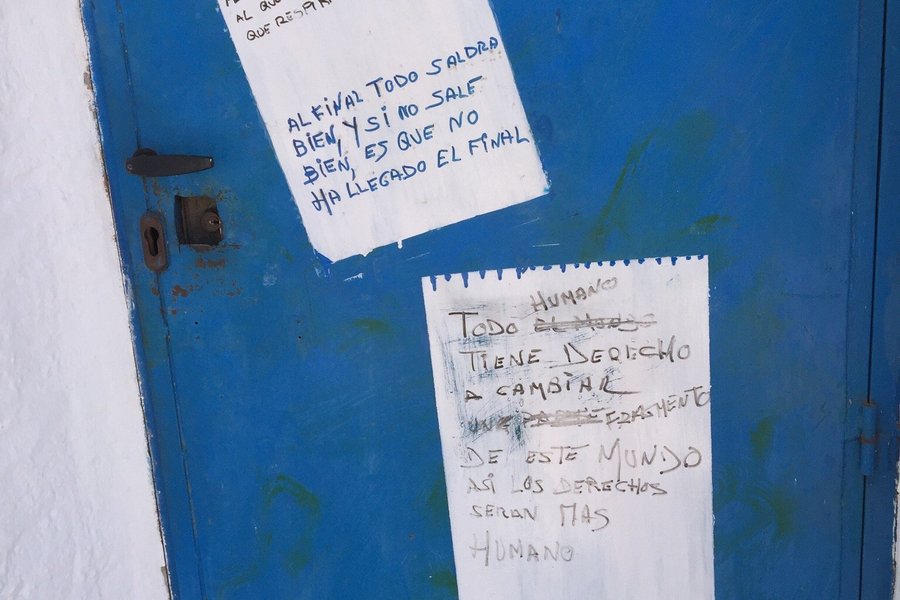 AL QU
QUE RESPIR
AL FINAL TODO SALDRA
BIEN, Y SI NO SALE
BIEN, ES QUE NO
HA LLEGADO EL FINAL
HUMANO
TODO
TIENE DERECHO
A CAMBIAR
FRAGMENTO
DE ESTE MUNDO
ASI LOS DERECHOS
SERAN MAS
HUMANO